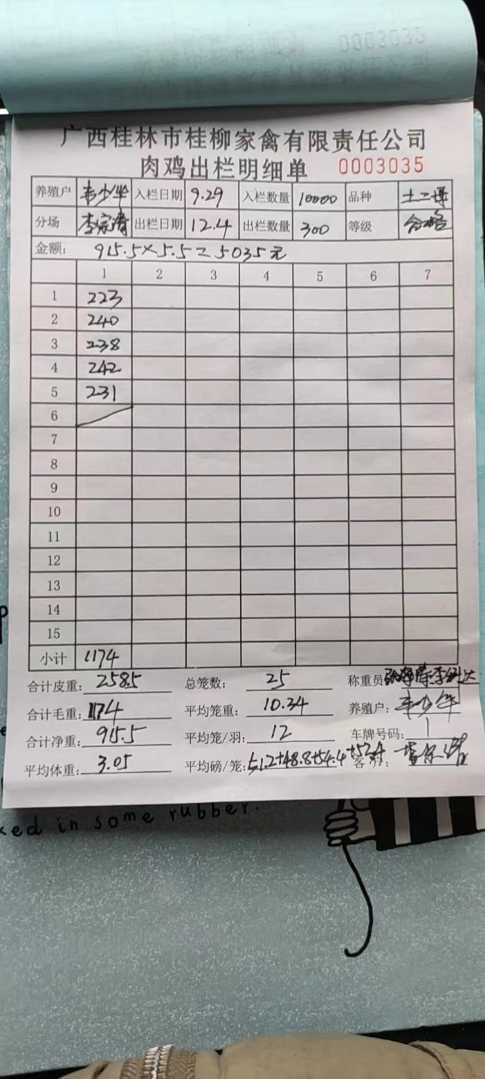 0003032
广西桂林市桂柳家禽有限责任公司
肉鸡出栏明细单 0003035
养殖户 韦少华 入栏日期 9.29 入栏数量 10000 品种
分场 李宗涛 出栏日期 12.4 出栏数量 300 等级 合格
金额: 915.5×5.5=5035元
1 2 3 4 5 6 7
1 223
2 240
3 238
4 242
5 231
6
7
8
9
10
11
12
13
14
15
小计 1174
合计皮重: 258.5 总笼数: 25 称重员
合计毛重: 1174 平均笼重: 10.34 养殖户: 韦少华
合计净重: 915.5 平均笼/羽: 12 车牌号码:
平均体重: 3.05 平均磅/笼: 51.2+48.8+54.4+52.4 客户:
ked in some rubber.